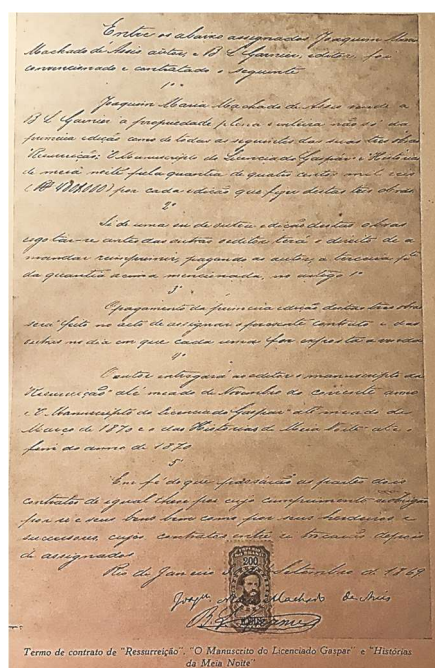 Entre os abaixo assignados Joaquim Maria
Machado de Assis autor, e B L Garnier, editor, foi
convencionado e contratado o seguinte
1º
Joaquim Maria Machado de Assis vende a
B L Garnier a propriedade plena e inteira não só da
primeira edição como de todas as seguintes das suas tres obras
Resurreição, O Manuscripto do Licenciado Gaspar e Historias
de meia noite pela quantia de quatro centos mil reis
por cada edição que fizer destas tres obras
2º
Si de uma ou de outra edição destas obras
esgotar-se antes das outras o editor terá o direito de a
mandar reimprimir, pagando ao autor, a terceira pte
da quantia acima mencionada, no artigo 1º
3º
O pagamento da primeira edição destas tres obras
será feito no acto de assignar o presente contrato e das
outras no dia em que cada uma for exposta a venda
4º
O autor entregará ao editor o manuscripto da
Resurreição até meado de Novembro do corrente anno
o O Manuscripto do Licenciado Gaspar até meado de
Março de 1870 e o das Historias de Meia Noite até o
fim do anno de 1870
5º
Em fé do que passarão as partes dous
contratos de igual theor por cujo cumprimento
por si e seus bens bem como por seus herdeiros e
successores, cujos contratos entre si trocarão depois
de assignados
Rio de Janeiro Setembro de 1869
200
Joaqm Machado de Assis
B. L. Garnier
Termo de contrato de "Ressurreição", "O Manuscrito do Licenciado Gaspar" e "Histórias
da Meia Noite"